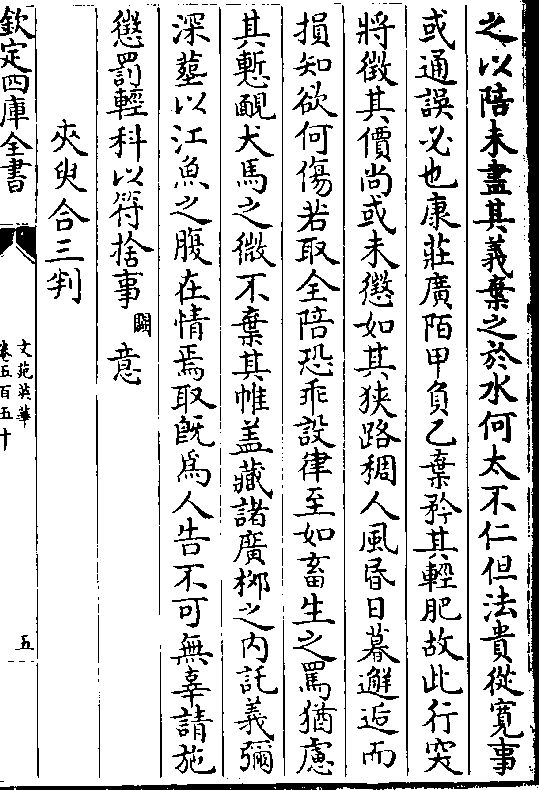 之以陪未盡其義棄之於水何太不仁但法貴從寬事
或通誤必也康莊廣陌甲負乙棄矜其輕肥故此行突
將徴其價尚或未懲如其狹路稠人風昏日暮邂逅而
損知欲何傷若取全陪恐乖設律至如畜生之罵猶慮
其慙靦犬馬之微不棄其帷盖藏諸廣梛之内託義彌
深塟以江魚之腹在情焉取既為人告不可無辜請施
懲罰輕科以符捨事闕意
夾臾合三判
欽定四庫全書
文苑英華
卷五百五十
五